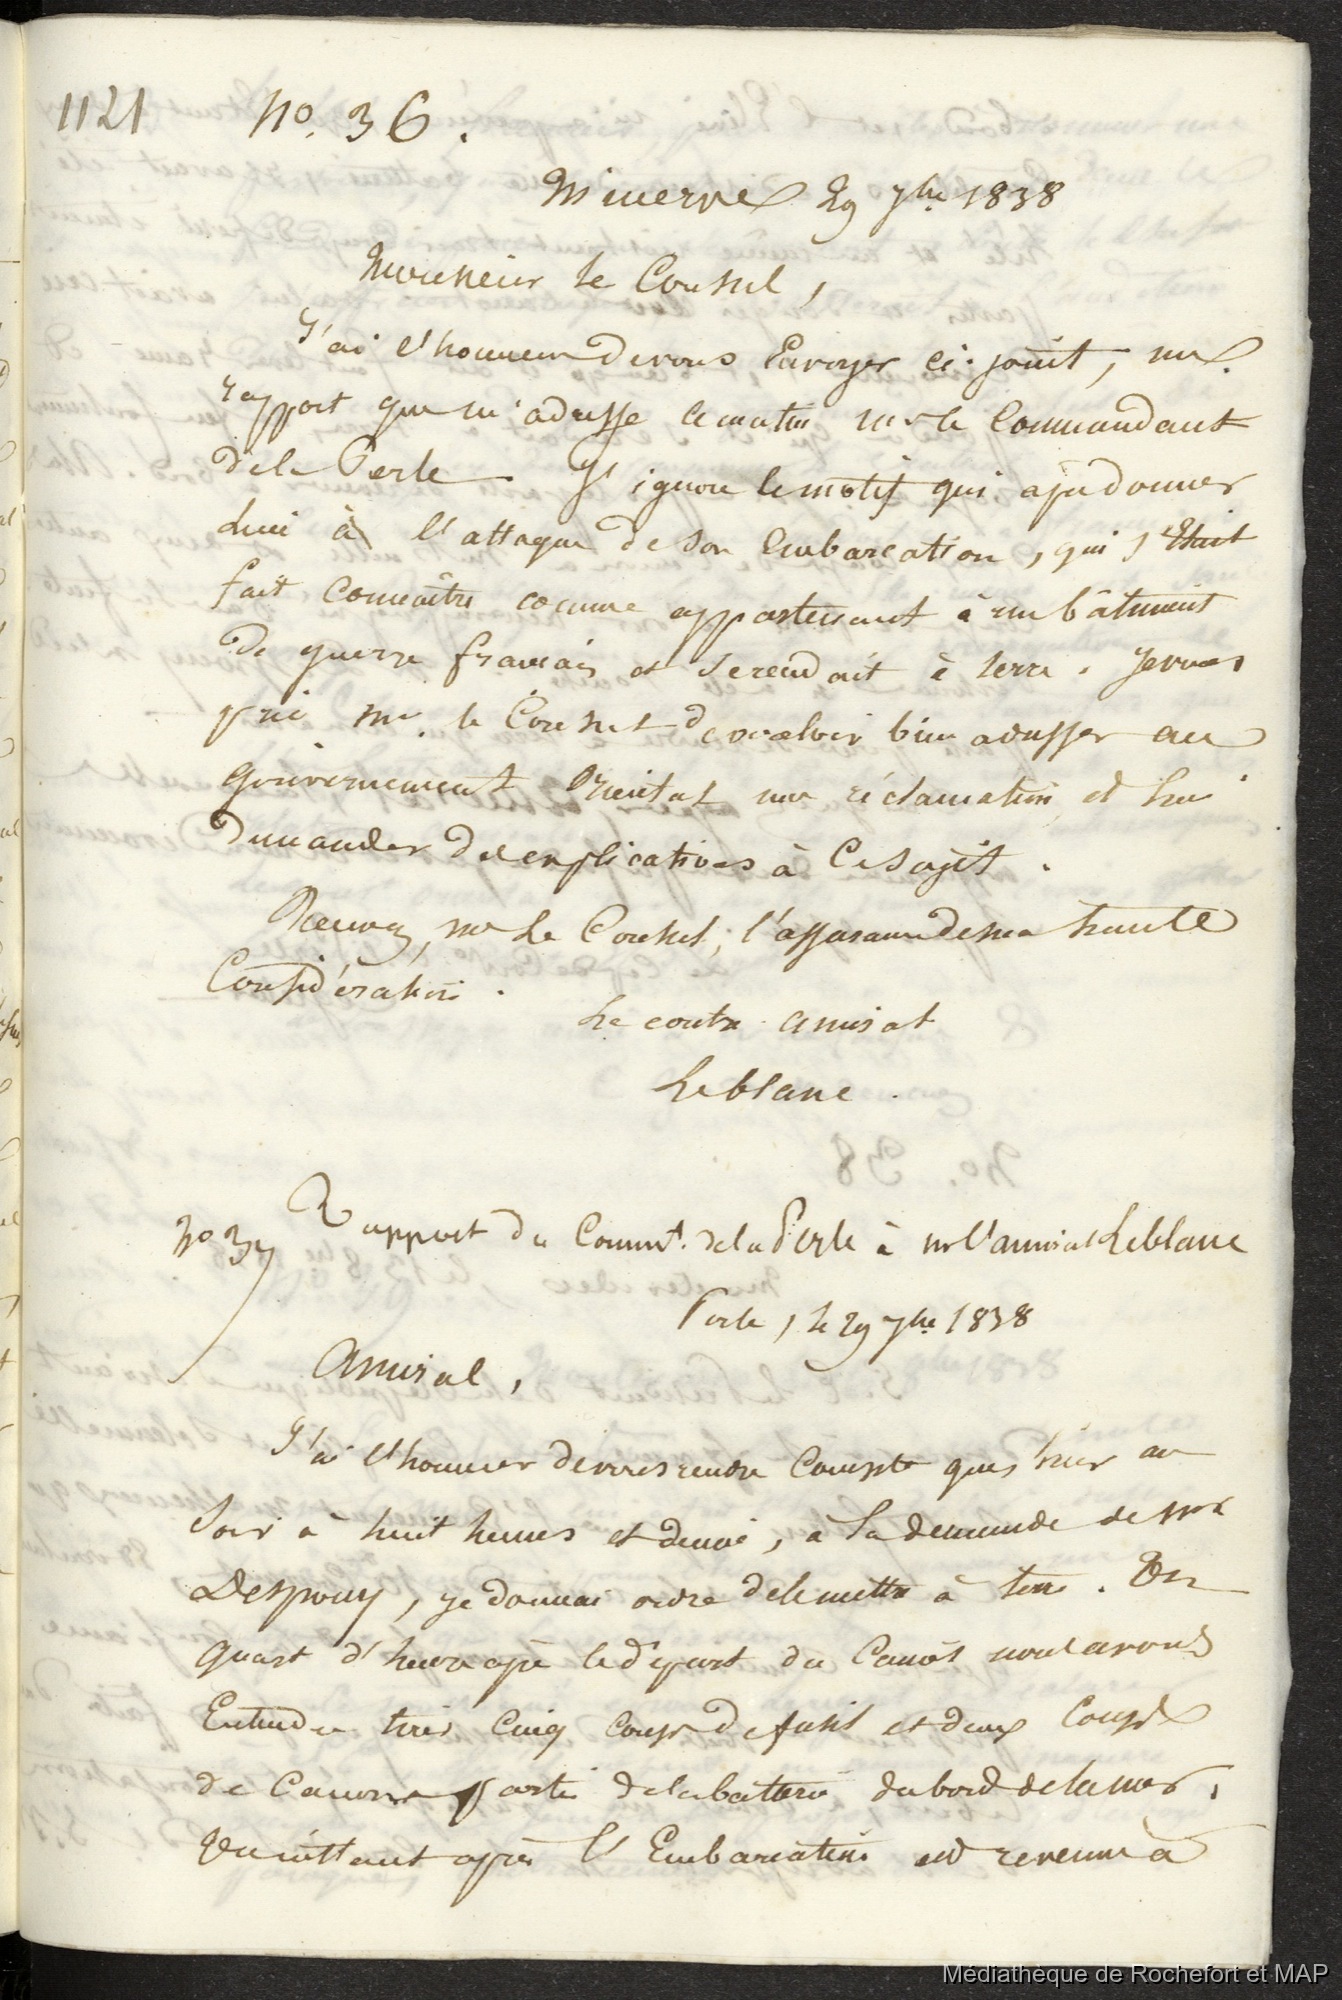 1121
No. 36.
Minerve 29 7bre 1838
Monsieur le Consul,
J'ai l'honneur de vous Envoyer ci-joint, un
rapport que m'adresse ce matin mr le Commandant
de la Perle. Il ignore le motif qui a pu donner
lieu à l'attaque de son Embarcation, qui s'Etait
fait Connaître comme appartenant à un bâtiment
de guerre français et se rendait à terre. Je vous
prie Mr. le Consul de vouloir bien adresser au
gouvernement Oriental une réclamation et lui
demander des explications à Ce Sujet.
Recevez, mr Le Consul, l'assurance de ma haute
Considération.
Le contre amiral
Leblanc.
No 37
Rapport du Commt. de la Perle à mr l'amiral Leblanc
Perle, le 29 7bre 1838
Amiral,
J'ai l'honneur de vous rendre Compte que, hier au
Soir à huit heures et demie, à la demande de Mr
Despouy, je donnai ordre de le mettre à terre. Un
quart d'heure après le départ du Canot nous avons
Entendu tirer Cinq Coups de fusil et deux Coups
de Canon partis de la batterie du bord de la mer,
Un instant après l'Embarcation est revenue à
Médiathèque de Rochefort et MAP